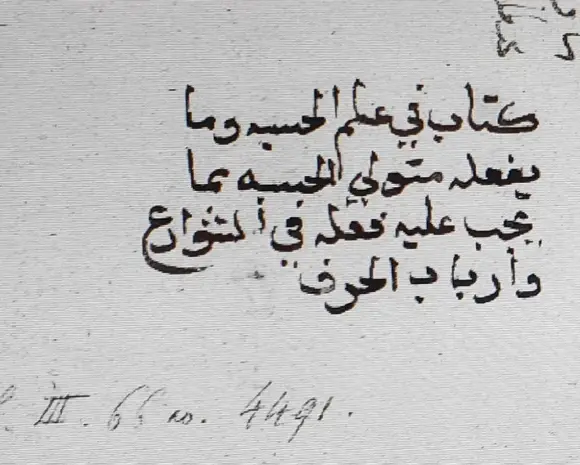 كتاب في علم الحسبه وما
يفعله متولي الحسبه مما
يجب عليه فعله في الشوارع
وأرباب الحرف
III. 66 no. 4491.